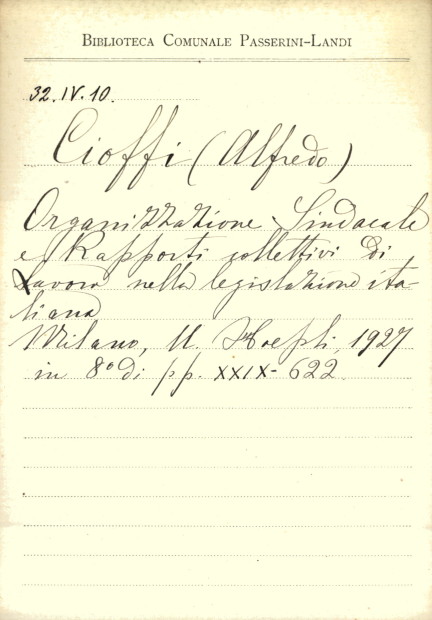 BIBLIOTECA COMUNALE PASSERINI-LANDI
32.IV.10.
Cioffi (Alfredo)
Organizzazione Sindacale
e Rapporti collettivi di
Lavoro nella legislazione ita-
liana
Milano, U. Hoepli, 1927
in 8º di pp. XXIX-622.